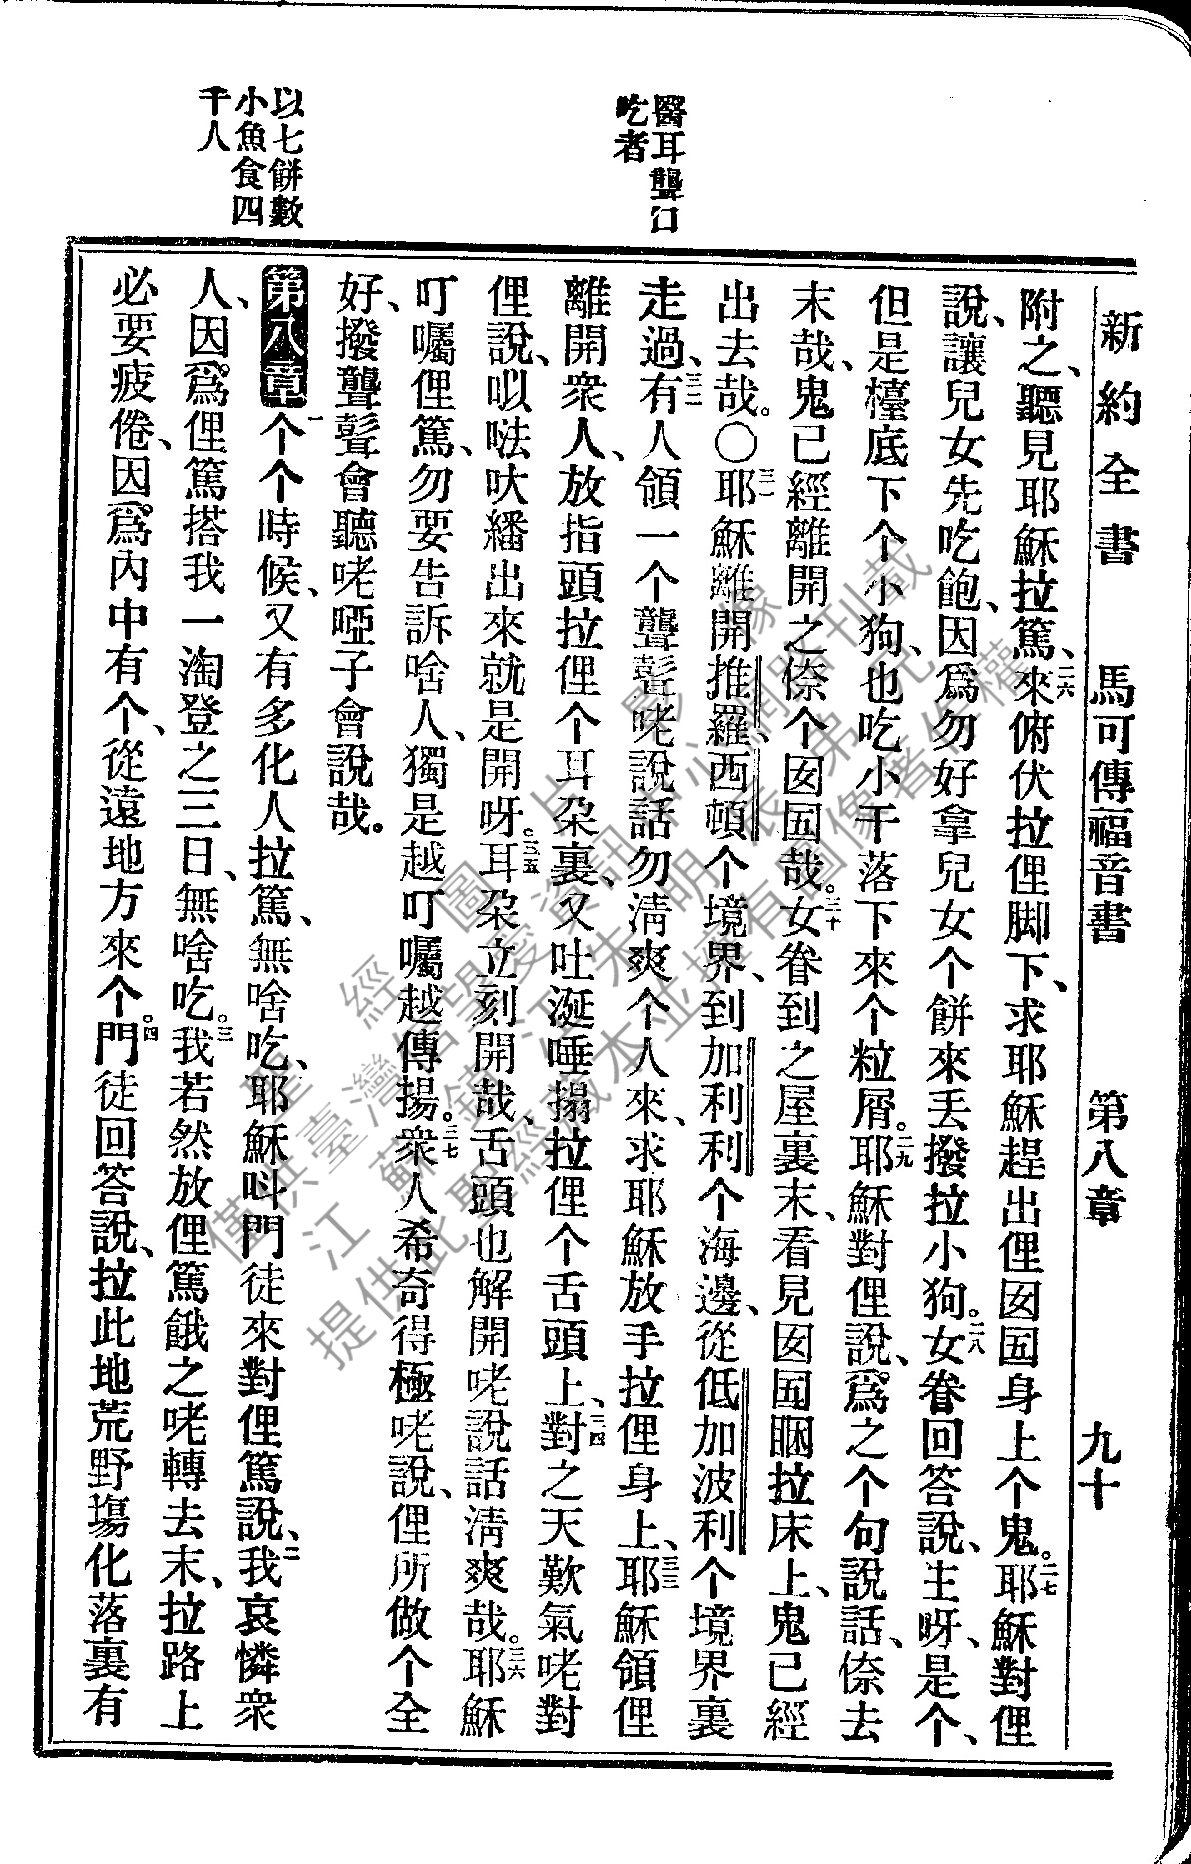 新約全書 馬可傳福音書 第八章 九十
附之、聽見耶穌拉篤、二六來俯伏拉俚脚下、求耶穌趕出俚囡囝身上个鬼。二七耶穌對俚
說、讓兒女先吃飽、因爲勿好拿兒女个餅來丟撥拉小狗。二八女眷回答說、主呀、是个、
但是檯底下个小狗、也吃小干落下來个粒屑。二九耶穌對俚說、爲之个句說話、倷去
末哉、鬼已經離開之倷个囡囝哉。三十女眷到之屋裏末、看見囡囝睏拉床上、鬼已經
出去哉。〇三一耶穌離開推羅、西頓个境界、到加利利个海邊、從低加波利个境界裏
走過、三二有人領一个聾聱咾說話勿淸爽个人來、求耶穌放手拉俚身上、三三耶穌領俚
離開衆人、放指頭拉俚个耳朶裏、又吐涎唾搨拉俚个舌頭上、三四對之天歎氣咾對
俚說、㕽㗐吠繙出來就是開呀。三五耳朶立刻開哉、舌頭也解開咾說話淸爽哉。三六耶穌
叮囑俚篤、勿要告訴啥人、獨是越叮囑越傳揚。三七衆人希奇得極咾說、俚所做个全
好、撥聾聱會聽咾啞子會說哉。
第八章一个个時候、又有多化人拉篤、無啥吃、耶穌呌門徒來對俚篤說、二我哀憐衆
人、因爲俚篤搭我一淘登之三日、無啥吃。三我若然放俚篤餓之咾轉去末、拉路上
必要疲倦、因爲內中有个、從遠地方來个。四門徒回答說、拉此地荒野塲化落裏有
醫耳聾口
吃者
以七餅數
小魚食四
千人
聖經圖片影像
僅供臺灣信望愛資訊中心網路刊載
江蘇鎮江朱明辰弟兄
提供此聖經藏本並擁有圖像著作權